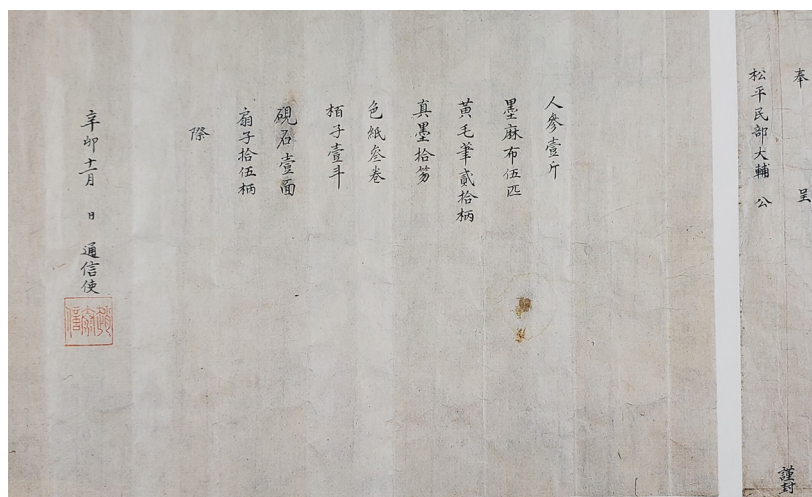 奉 呈
松平民部大輔 公
謹封
人參壹斤
墨麻布伍匹
黃毛筆貳拾柄
真墨拾笏
色紙叄卷
栢子壹斗
硯石壹面
扇子拾伍柄
際
辛卯十一月 日 通信使